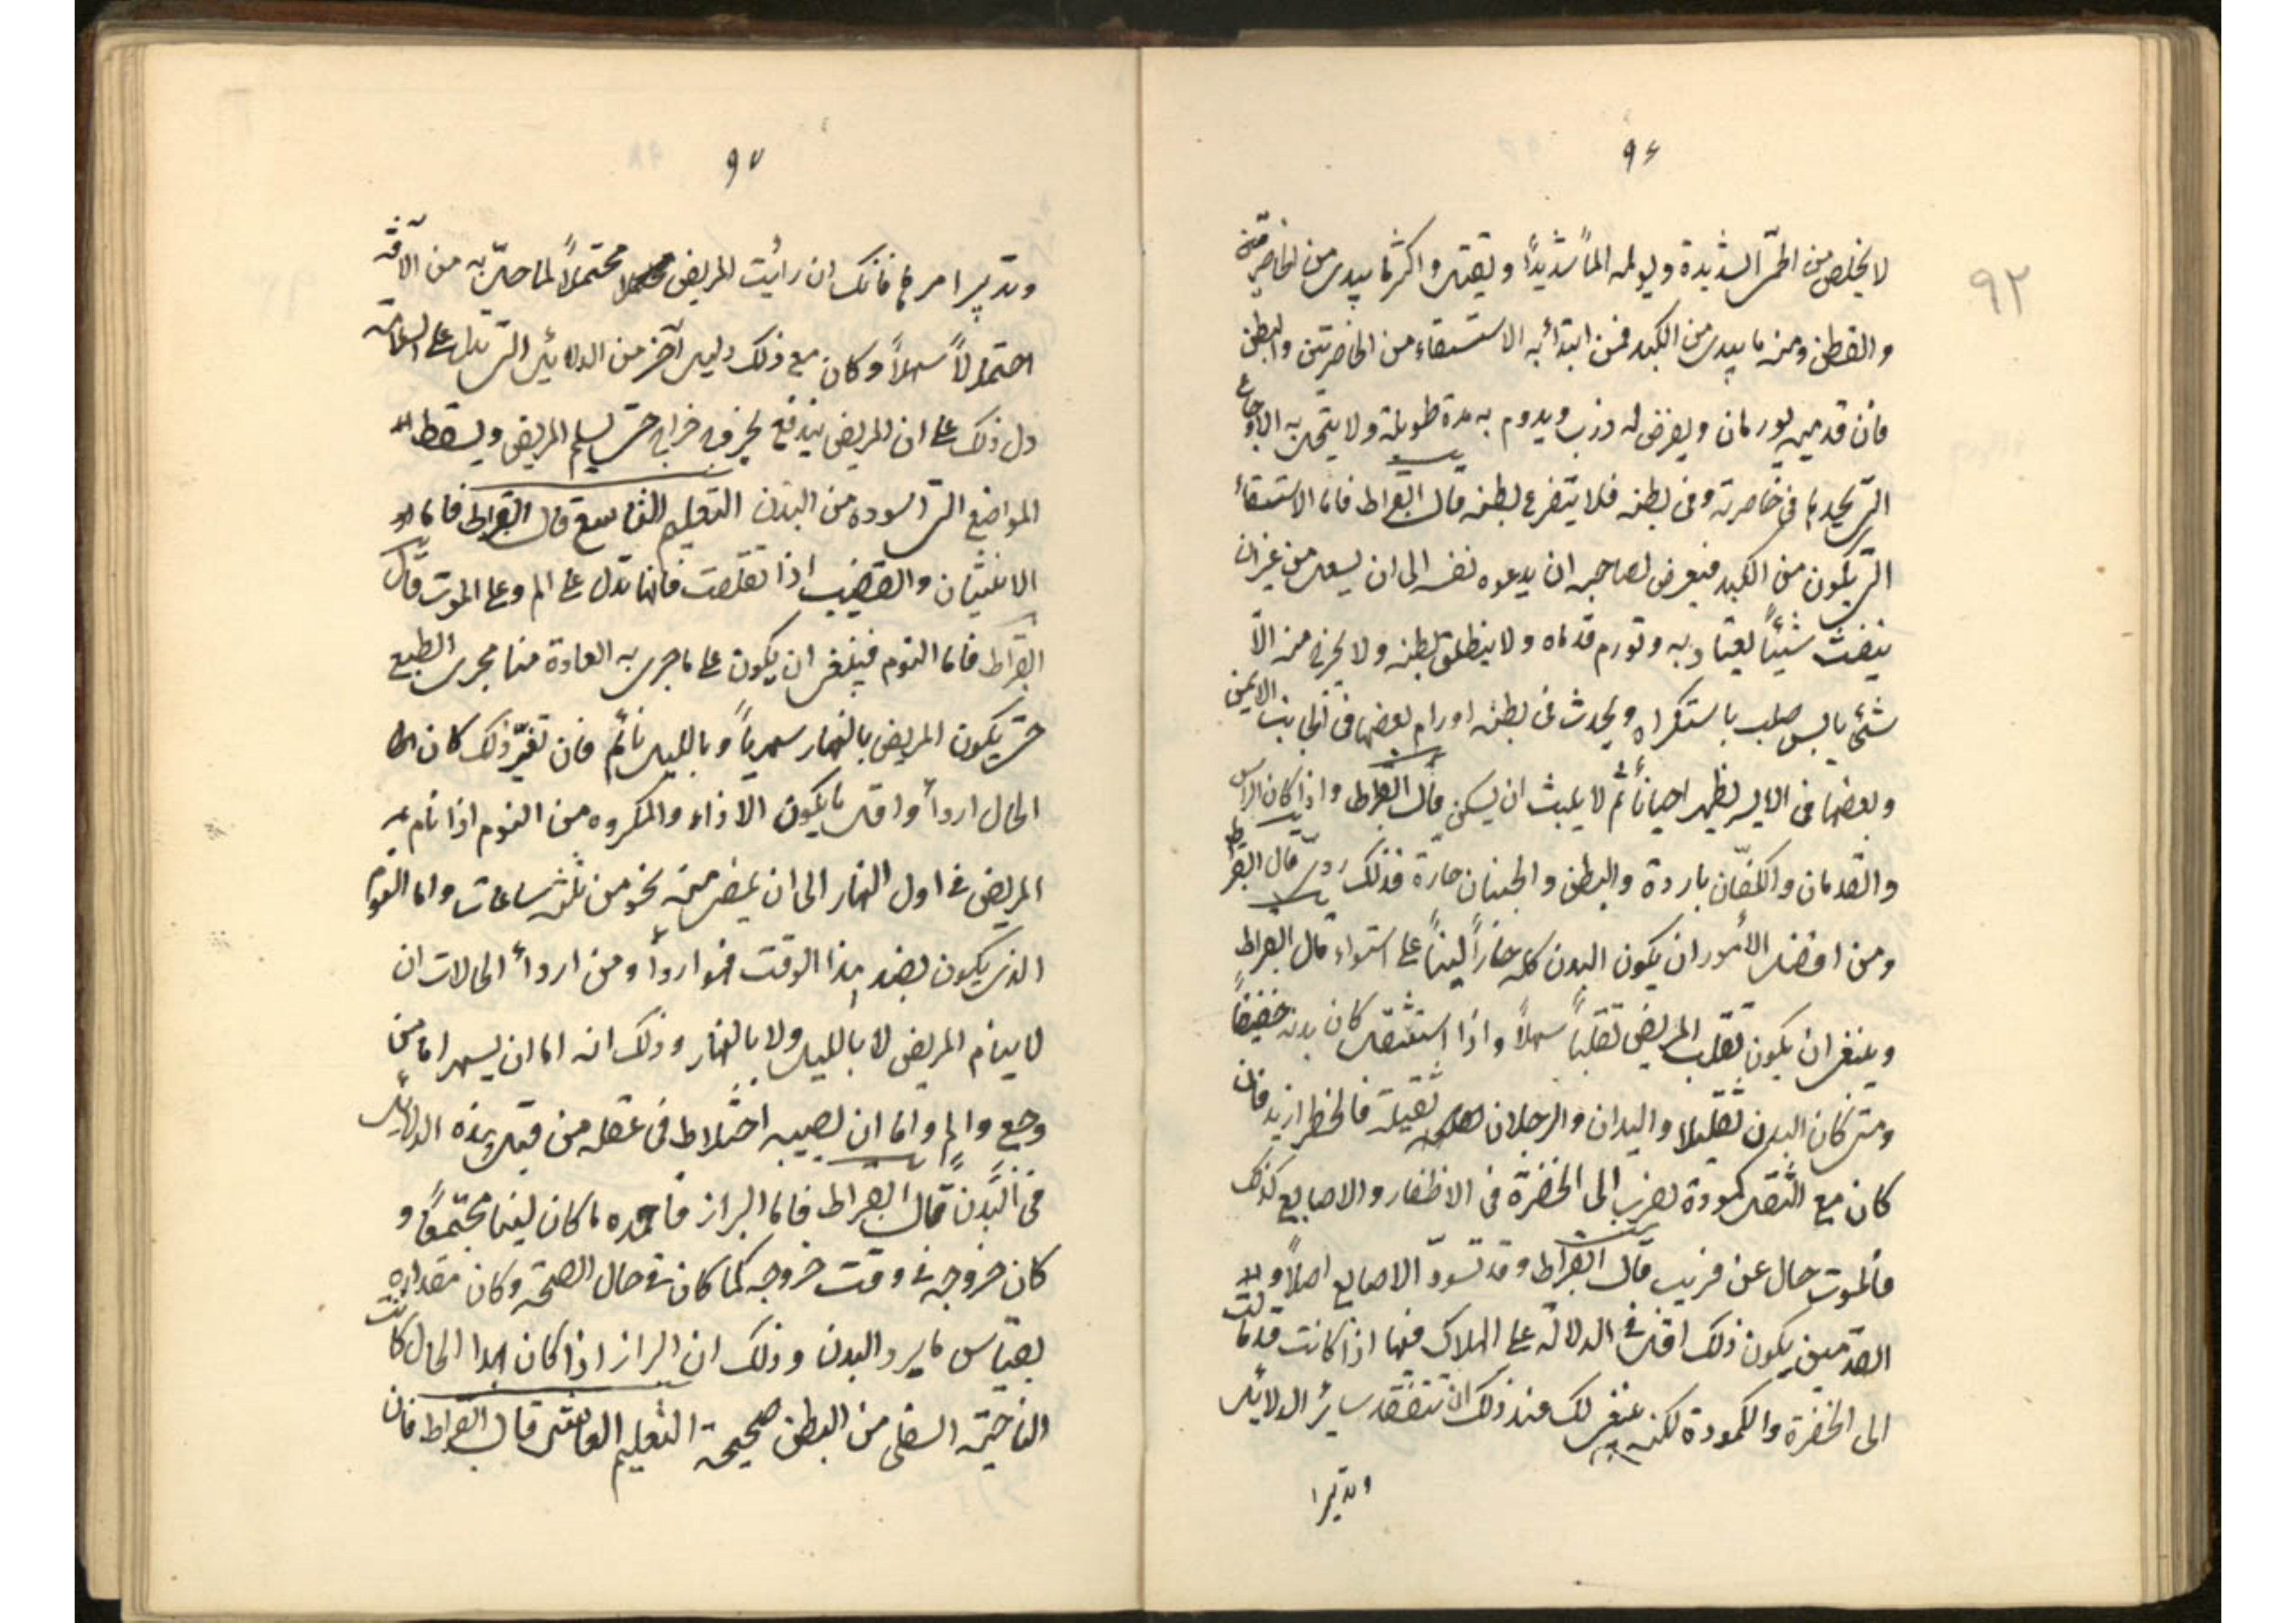 ٩٦
٩٢
لا يخلص من الحمى الشديدة ويولمه الماً شديداً ويقتل واكثر ما يبدى من الخاصرتين
والقطن ومنه ما يبدى من الكبد فمن ابتدأ به الاستسقاء من الخاصرتين والبطن
فان قدميه يورمان ويعرض له ذرب ويدوم به مدة طويلة ولا ينحل به الاوجاع
التى يجدها فى خاصرته وفى بطنه فلا يتضرع بطنه قال ابقراط فاما الاستسقاء
التى يكون من الكبد فيعرض لصاحبه ان يدعوه نفسه الى ان يسعل من غير ان
ينفث شيئاً يعتاد به وتورم قدماه ولا ينطلق بطنه ولا يخرج منه الّا
شئ يابس صلب باستكراه ويحدث فى بطنه اورام بعضها فى الجانب الايمن
وبعضها فى الايسر يظهر احياناً ثم لا يلبث ان يسكن قال ابقراط واذا كان الراس
والقدمان والكفّان باردة والبطن والجنبان حارة فذلك ردىّ قال ابقراط
ومن افضل الأمور ان يكون البدن كله حاراً ليناً على استواء قال ابقراط
وينبغى ان يكون تقلب المريض تقلباً سهلاً واذا استثقل كان بدنه خفيفاً
ومتى كان البدن ثقيلا واليدان والرجلان ثقيلة فالخطر ازيد فان
كان مع الثقل كمودة يضرب الى الخضرة فى الاظفار والاصابع كذلك
فالموت حال عن قريب قال ابقراط وقد تسودّ الاصابع اصلاً و
القدمين يكون ذلك اقل فى الدلالة على الهلاك منها اذا كانت قد مالت
الى الخضرة والكمودة لكنه ينبغى لك عند ذلك ان تتفقد سائر الدلائل
وتدبيرا
٩٧
وتدبيرا مرها فانك ان رأيت المريض محتملاً لما حلّ به من الآفة
احتمالاً سهلاً وكان مع ذلك دليل آخر من الدلائل التى يدل على السلامة
دل ذلك على ان المريض يندفع بخروج خراج حتى يسلم المريض ويسقط
المواضع التى اسوده من البدن التعليم التاسع قال ابقراط فاما
الانثيان والقضيب اذا تقلصت فانها تدل على الم وعلى الموت قال
ابقراط فاما النوم فينبغى ان يكون على ما جرى به العادة منا مجرى الطبع
حتى يكون المريض بالنهار سهرياً وبالليل نائم فان تغيّر ذلك كان
الحال اردأ واقل ما يكون الاذاء والمكروه من النوم اذا نام
المريض فى اول النهار الى ان يمضى منه نحو من ثلثه ساعات واما النوم
الذى يكون بعد هذا الوقت فهو اردأ ومن اردأ الحالات ان
لا ينام المريض لا بالليل ولا بالنهار وذلك انه اما ان يسهر اما من
وجع والم واما ان يصيبه اختلاط فى عقله من قبل هذه الدلائل
فى البدن قال ابقراط فاما البراز فاحمده ما كان لينا مجتمعاً و
كان خروجه فى وقت خروجه كما كان فى حال الصحة وكان مقداره
بقياس ما يرد البدن وذلك ان البراز اذا كان بهذا الحال كانت
الناحية السفلى من البطن صحيحة التعليم العاشر قال ابقراط فان